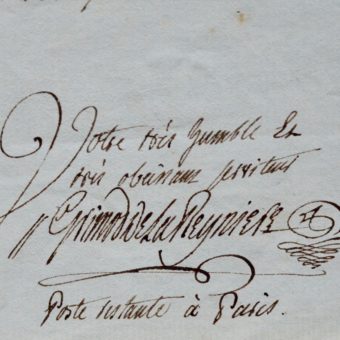 Votre très humble Et
très obéissant serviteur
Grimod de La Reynière
Poste restante à Paris.